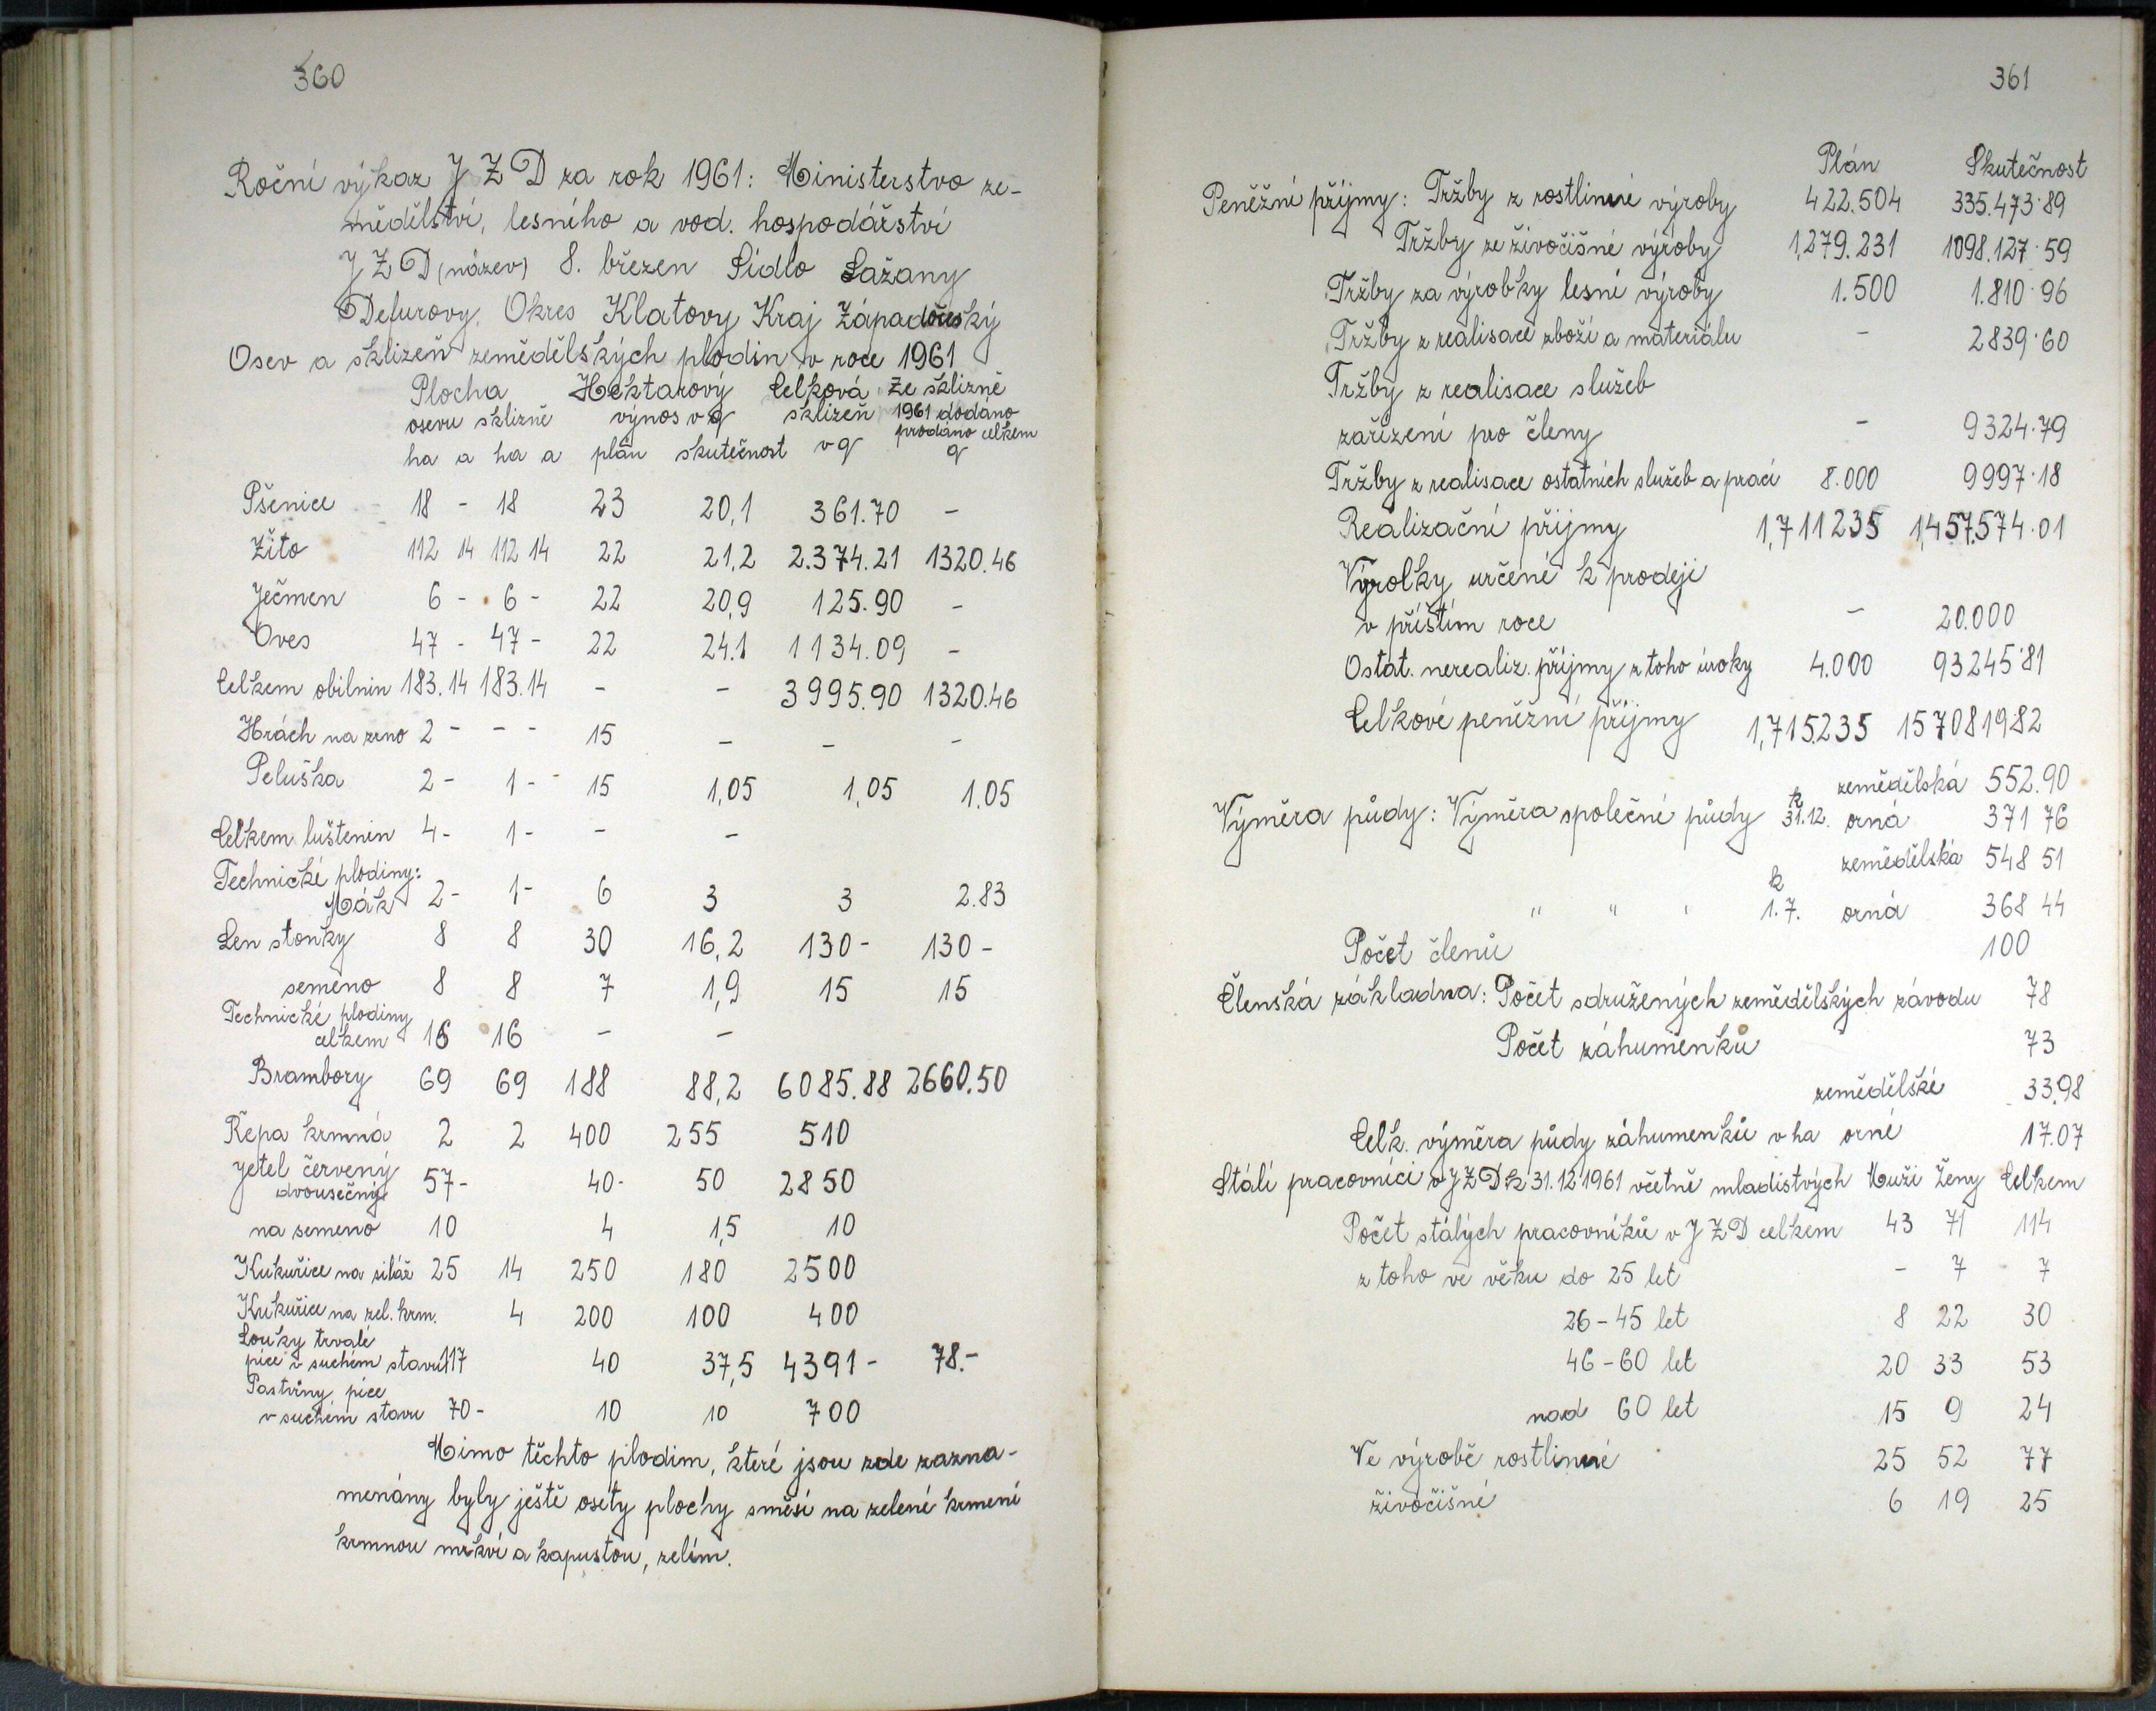 360
Roční výkaz J Z D za rok 1961: Ministerstvo ze-
mědělství, lesního a vod. hospodářství
J Z D (název) 8. březen Sídlo Lažany
Defurovy. Okres Klatovy Kraj Západočeský
Osev a sklizeň zemědělských plodin v roce 1961
Plocha Hektarový Celková Ze sklizně
osevu sklizně výnos v q sklizeň 1961 dodáno
prodáno celkem
ha a ha a plán skutečnost v q q
Pšenice 18 - 18 23 20,1 361.70 -
Žito 112 14 112 14 22 21,2 2.374.21 1320.46
Ječmen 6 - 6 - 22 20,9 125.90 -
Oves 47 - 47 - 22 24.1 1134.09 -
Celkem obilnin 183.14 183.14 - - 3995.90 1320.46
Hrách na zrno 2 - - - 15 - - -
Peluška 2 - 1 - - 15 1,05 1,05 1.05
Celkem luštenin 4 - 1 - - -
Technické plodiny:
Mák 2 - 1 - 6 3 3 2.83
Len stonky 8 8 30 16,2 130 - 130 -
semeno 8 8 7 1,9 15 15
Technické plodiny
celkem 16 16 - -
Brambory 69 69 188 88,2 6085.88 2660.50
Řepa krmná 2 2 400 255 510
Jetel červený
dvousečný 57 - 40 - 50 2850
na semeno 10 4 1,5 10
Kukuřice na siláž 25 14 250 180 2500
Kukuřice na zel. krm. 4 200 100 400
Louky trvalé
píce v suchém stavu 117 40 37,5 4391 - 78.-
Pastviny píce
v suchém stavu 70 - 10 10 700
Mimo těchto plodim, které jsou zde zazna-
menány byly ještě osety plochy směsí na zelené krmení
krmnou mrkví a kapustou, zelím.
361
Plán Skutečnost
Peněžní příjmy: Tržby z rostlinné výroby 422.504 335.473·89
Tržby ze živočišné výroby 1,279.231 1098.127·59
Tržby za výrobky lesní výroby 1.500 1.810·96
Tržby z realisace zboží a materiálu - 2839·60
Tržby z realisace služeb
zařízení pro členy - 9324·79
Tržby z realisace ostatních služeb a prací 8.000 9997·18
Realizační příjmy 1,711235 1,457.574·01
Výrobky určené k prodeji
v příštím roce - 20.000
Ostat. nerealiz. příjmy z toho úroky 4.000 93245·81
Celkové peněžní příjmy 1,715235 157081982
zemědělská 552.90
Výměra půdy: Výměra společné půdy k 31.12. orná 371 76
zemědělská 548 51
" " " k 1.7. orná 368 44
Počet členů 100
Členská základna: Počet sdružených zemědělských závodu 78
Počet záhumenků 73
zemědělské 33,98
Celk. výměra půdy záhumenků v ha orné 17.07
Stálí pracovníci v J Z D k 31.12 1961 včetně mladistvých Muži Ženy Celkem
Počet stálých pracovníků v J Z D celkem 43 71 114
z toho ve věku do 25 let - 7 7
26 - 45 let 8 22 30
46 - 60 let 20 33 53
nad 60 let 15 9 24
Ve výrobě rostlinné 25 52 77
živočišné 6 19 25